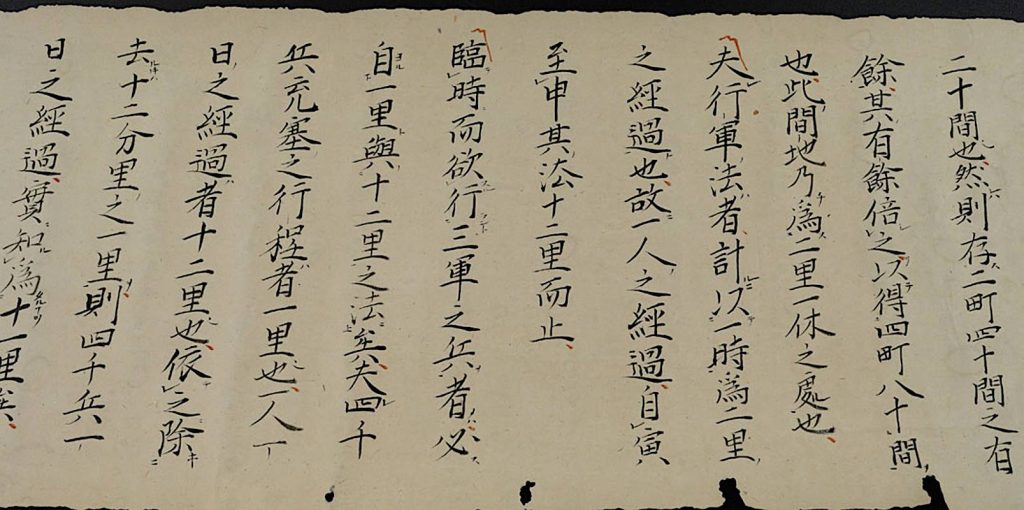 二十間也然則存二町四十間之有
餘其有餘倍之以得四町八十間
也此間地乃為二里一休之處也
夫行軍法者計以一時為二里
之經過也故一人之經過自寅
至申其法十二里而止
臨時而欲行三軍之兵者必
自一里與十二里之法矣夫四千
兵充塞之行程者一里也一人一
日之經過者十二里也依之除
去十二分里之一里則四千兵一
日之經過實知為十一里矣